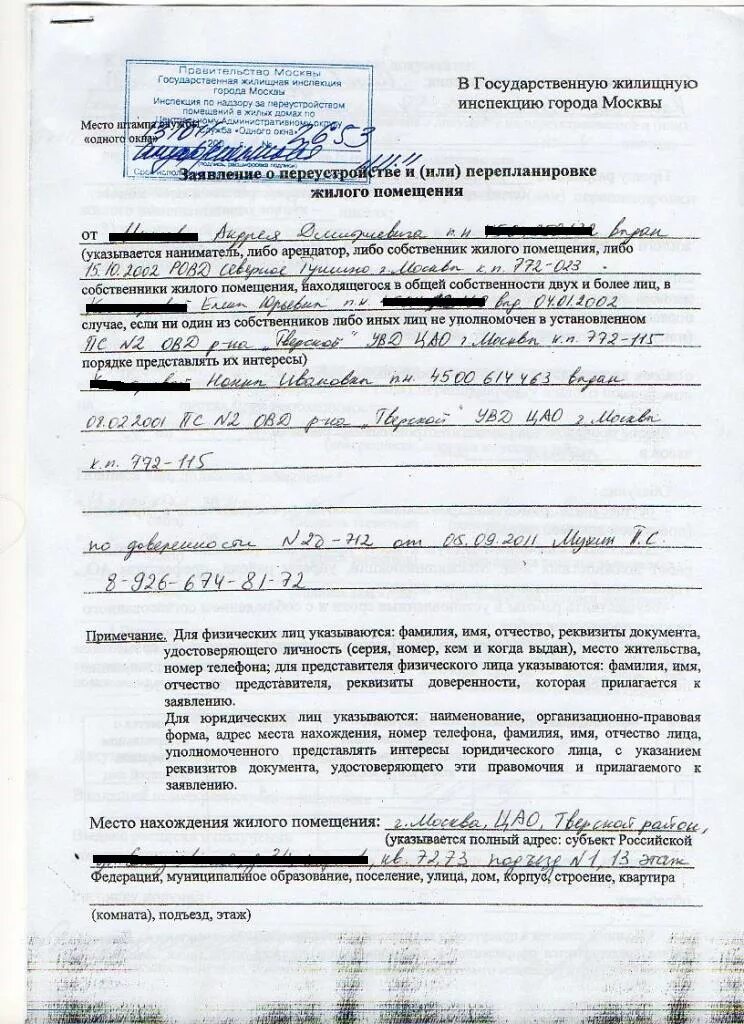 В Государственную жилищную
инспекцию города Москвы
Правительство Москвы
Государственная жилищная инспекция
города Москвы
Инспекция по надзору за переустройством
помещений в жилых домах по
Центральному Административному округу
Служба «Одного окна»
№ 2653
Место штампа службы
«одного окна»
Заявление о переустройстве и (или) перепланировке
жилого помещения
от Андрея Дмитриевича п.н. выдан
(указывается наниматель, либо арендатор, либо собственник жилого помещения, либо
15.10.2002 РОВД Северное Тушино г. Москвы к.п. 772-023.
собственники жилого помещения, находящегося в общей собственности двух и более лиц, в
Елены Юрьевны п.н. выд 04.01.2002
случае, если ни один из собственников либо иных лиц не уполномочен в установленном
ПС N2 ОВД р-на „Тверской" УВД ЦАО г. Москвы к.п. 772-115
порядке представлять их интересы)
Нонны Ивановны п.н. 4500 614463 выдан
08.02.2001 ПС N2 ОВД р-на „Тверской" УВД ЦАО г. Москвы
к.п. 772-115
по доверенности N2D-712 от 05.09.2011 Мухин П.С.
8-926-674-81-72
Примечание. Для физических лиц указываются: фамилия, имя, отчество, реквизиты документа,
удостоверяющего личность (серия, номер, кем и когда выдан), место жительства,
номер телефона; для представителя физического лица указываются: фамилия, имя,
отчество представителя, реквизиты доверенности, которая прилагается к
заявлению.
Для юридических лиц указываются: наименование, организационно-правовая
форма, адрес места нахождения, номер телефона, фамилия, имя, отчество лица,
уполномоченного представлять интересы юридического лица, с указанием
реквизитов документа, удостоверяющего эти правомочия и прилагаемого к
заявлению.
Место нахождения жилого помещения: г. Москва, ЦАО, Тверской район,
(указывается полный адрес: субъект Российской
, кв. 72,73 подъезд N1, 13 этаж
Федерации, муниципальное образование, поселение, улица, дом, корпус, строение, квартира
(комната), подъезд, этаж)